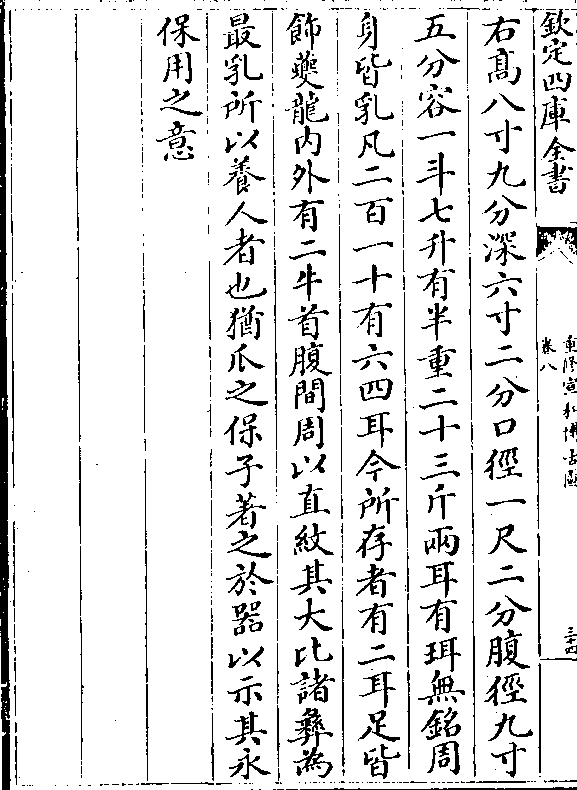 欽定四庫全書
重修宣和博古圖
卷八
三十四
右髙八寸九分深六寸二分口徑一尺二分腹徑九寸
五分容一斗七升有半重二十三斤兩耳有珥無銘周
身皆乳凡二百一十有六四耳今所存者有二耳足皆
飾夔龍内外有二牛首腹間周以直紋其大比諸彝為
最乳所以養人者也猶爪之保子著之於器以示其永
保用之意